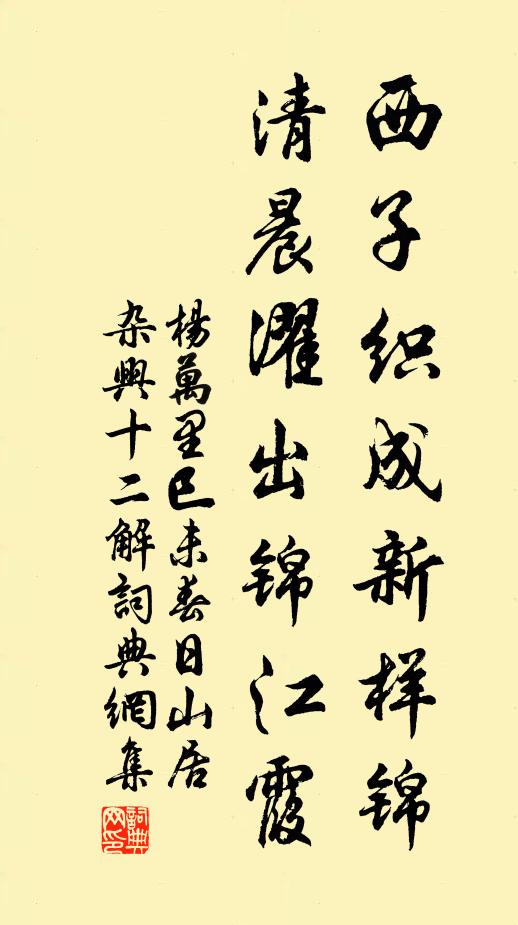 西子织成新样锦
清晨濯出锦江霞
杨萬里已未春日山居
杂興十二解詞典網集
詞典网印